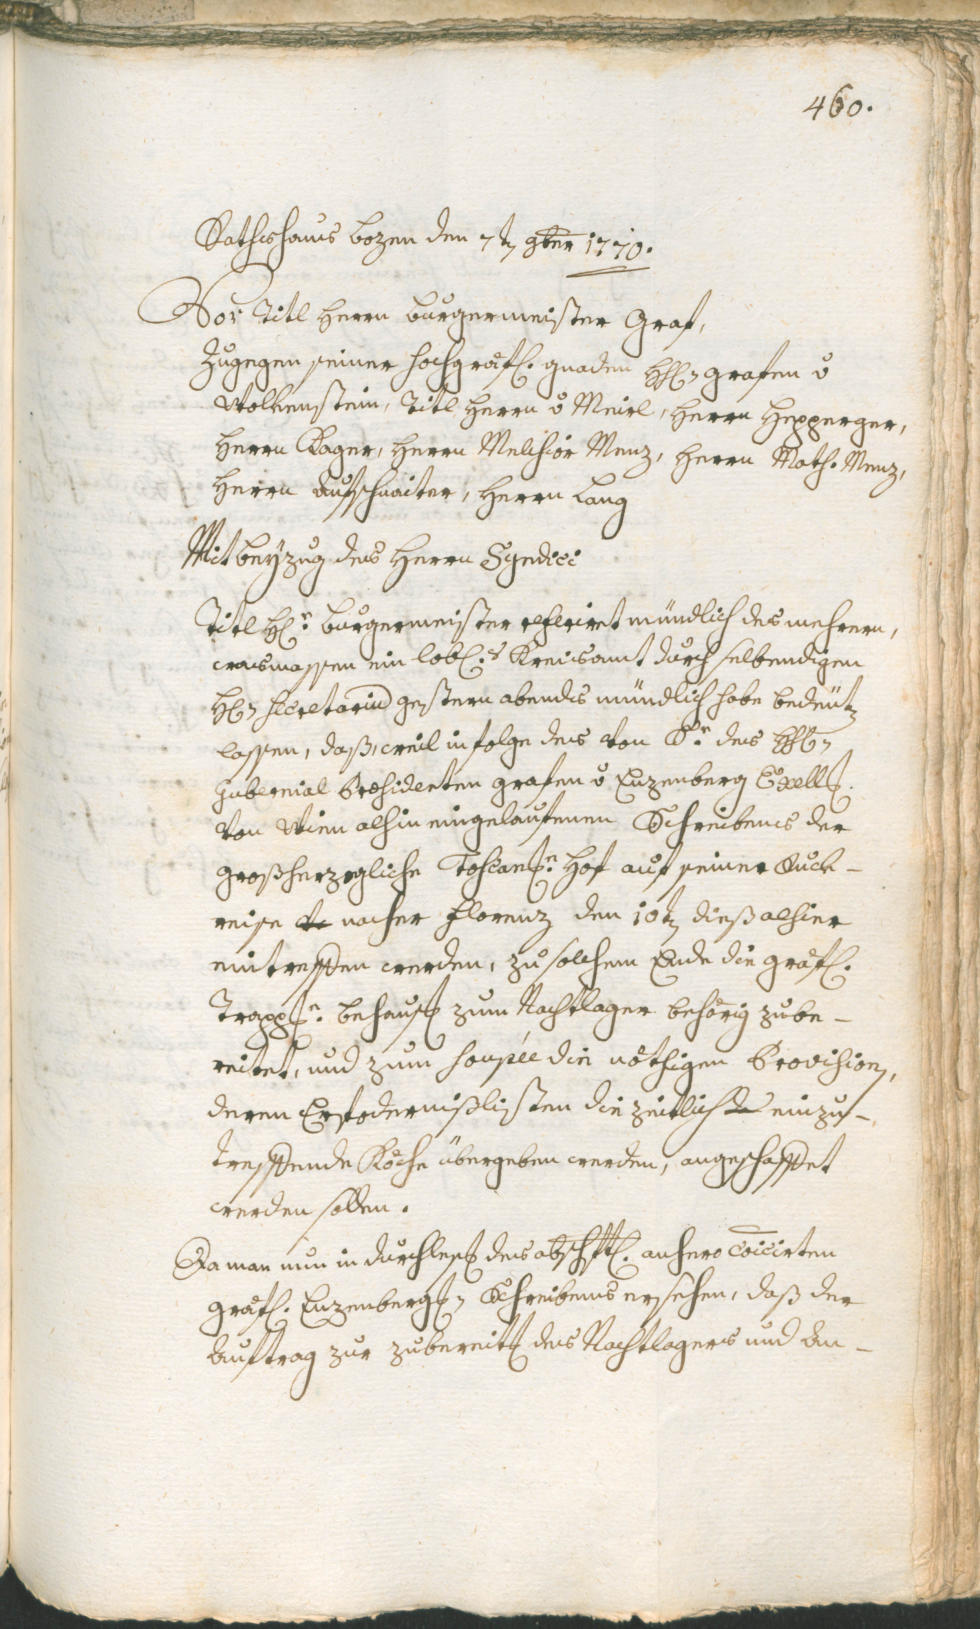 460.
Rathshaus bozen den 7t 9ber 1770.
Vor Titl herrn burgermeister Graf,
Zugegen seiner hochgräfl. gnaden HH grafen v
Wolkenstein, Titl herrn v Meirl, herrn Hepperger,
herrn Kager, herrn Melchior Menz, herrn Math. Menz,
herrn Aufschnaiter, herrn Lang
Mit beÿzug des herrn Syndici
Titl H: burgermeister referiret mündlich des mehrern,
wasmassen ein lobl:s Kreisamt durch selbendigen
H Secretario gestern abends mündlich habe bedeüt
lassen, daß, weil in folge des von Sr des HH
Gubernial Præsidenten grafen v Enzenberg Excell.
von Wien alhin eingelaufenen Schreibens der
großherzogliche Toscan: Hof auf seiner Ruck-
reise nacher Florenz den 10t dieß alhier
eintreffen werden, zu solchem Ende die gräfl.
Trapp: behaus zum Nachtlager behörig zube-
reitet, und zum soupée die nöthigen Provision,
deren Erfordernißlisten die zeitlich einzu-
treffende Köche übergeben werden, angeschaffet
werden sollen.
Da man nun in durchles des abschftl. anhero coicirten
gräfl. Enzenberg Schreibens ersehen, daß der
Auftrag zur zubereit des Nachtlagers und An-